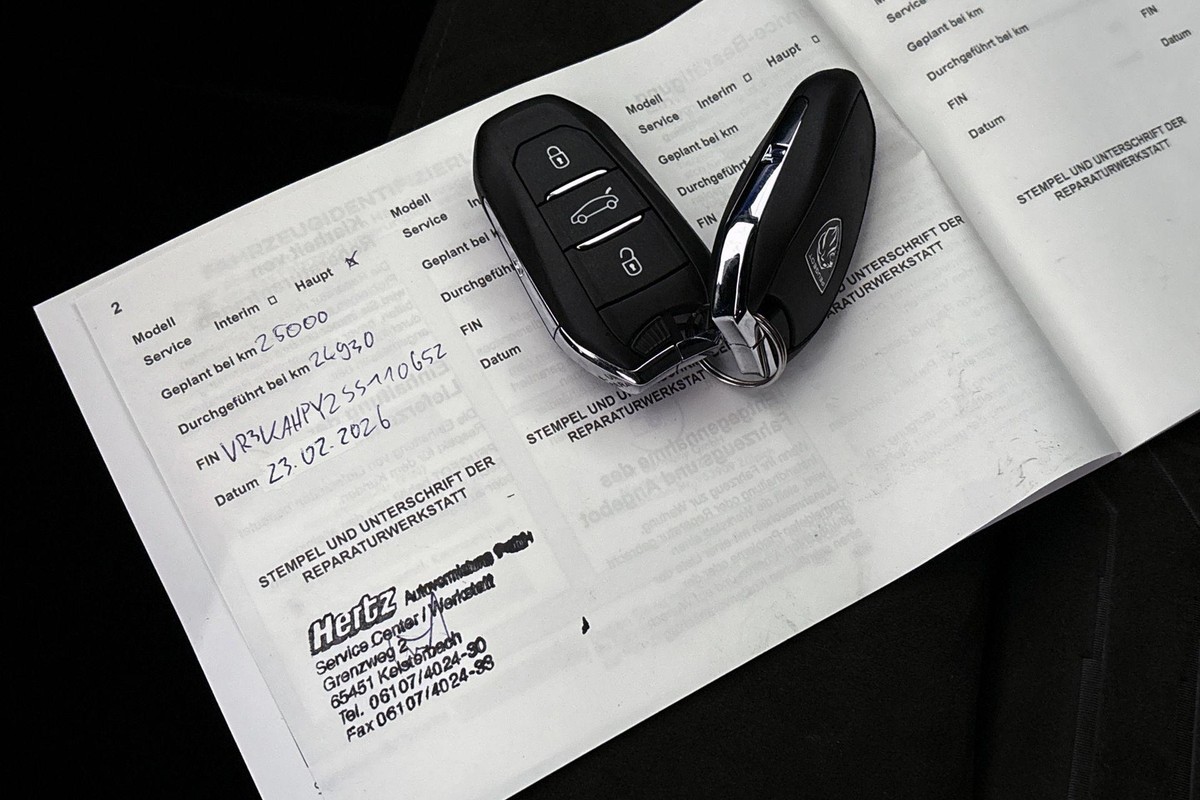 2
Modell
Service Interim Haupt x
Geplant bei km 25000
Durchgeführt bei km 24930
FIN VR3KAHPY2SS110652
Datum 23.02.2026
STEMPEL UND UNTERSCHRIFT DER
REPARATURWERKSTATT
Hertz Autovermietung GmbH
Service Center / Werkstatt
Grenzweg 2
65451 Kelsterbach
Tel. 06107/4024-30
Fax 06107/4024-33
Modell
Service
Geplant bei
Durchgeführt
FIN
Datum
STEMPEL UND
REPARATURWERKSTATT
Modell
Service Interim Haupt
Geplant bei km
Durchgeführt
FIN
UNTERSCHRIFT DER
REPARATURWERKSTATT
Service
Geplant bei km
Durchgeführt bei km
FIN
Datum
STEMPEL UND UNTERSCHRIFT DER
REPARATURWERKSTATT
FIN
Datum